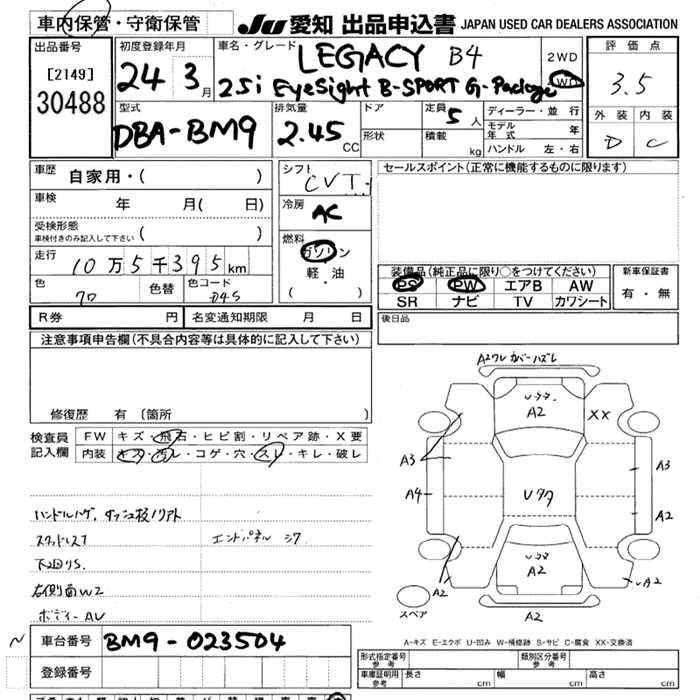 車内保管・守衛保管
JU 愛知 出品申込書 JAPAN USED CAR DEALERS ASSOCIATION
出品番号
[2149]
30488
初度登録年月
24 3月
車名・グレード
LEGACY B4
25i EyeSight B-SPORT G-Package
2WD
4WD
評価点
3.5
外装 内装
D C
型式
DBA-BM9
排気量
2.45 CC
ドア
形状
定員 5人
積載 kg
ディーラー・並行
モデル年式 年
ハンドル 左・右
車歴 自家用・( )
車検 年 月( 日)
受検形態
車検付きのみ記入して下さい ( )
走行 10万5千395km
色 クロ 色替 色コード D4S
シフト
CVT
冷房
AC
燃料
ガソリン
軽・油
( ・ )
セールスポイント(正常に機能するものに限ります)
装備品(純正品に限り○をつけてください)
PS PW エアB AW
SR ナビ TV カワシート
新車保証書
有・無
R券 円 名変通知期限 月 日
後日品
注意事項申告欄(不具合内容等は具体的に記入して下さい)
修復歴 有(箇所 )
検査員記入欄
FW キズ・飛石・ヒビ割・リペア跡・X要
内装 キズ・汚レ・コゲ・穴・スレ・キレ・破レ
ハンドルハゲ,ダッシュ
スタッドレス
エンドパネル
下廻りS.
右側面W2
ボディーAU
A2ワレ カバーハズレ
A2
XX
A3
A4
A3
A2
A2
A2
A2
A2
スペア
A-キズ E-エクボ U-凹み W-補修跡 S-サビ C-腐食 XX-交換済
車台番号 BM9-023504
登録番号
形式指定番号 参考
類別区分番号 参考
車庫証明用 参考 長さ cm 幅 cm 高さ cm